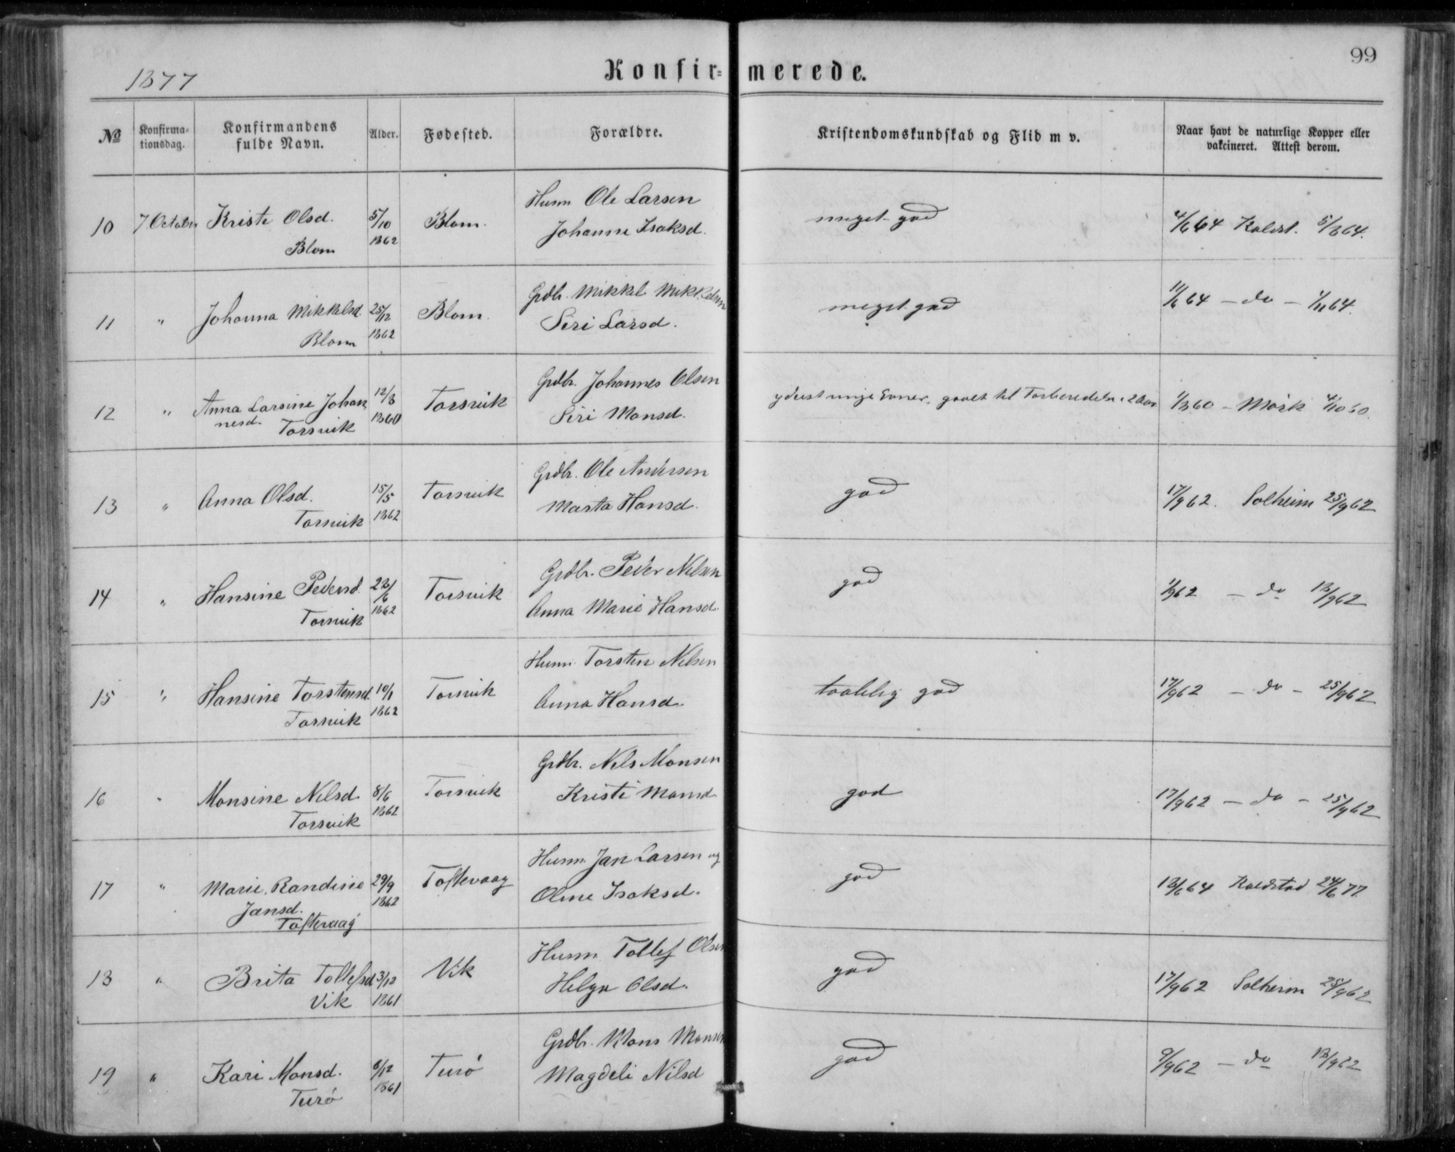 1877
Konfir= merede.
99
№ Konfirma- tionsdag. Konfirmandens fulde Navn. Alder. Fødested. Forældre. Kristendomskundskab og Flid m v. Naar havt de naturlige Kopper eller vakcineret. Attest derom.
10 7 October Kristi Olsd. 5/10 Blom. Husm Ole Larsen meget god 4/6 64 Kolvst. 5/8 64.
Blom 1862 Johanne Isaksd.
11 " Johanna Mikkelsd 25/12 Blom. Grdbr. Mikkel Mikkelsen meget god 11/6 64 – do – 1/11 64.
Blom 1862 Siri Larsd.
12 " Anna Larsine Johan 12/3 Torsvik Grdbr. Johannes Olsen yderst ringe Evner, gaaet til Forberedelse i 2 Aar 1/8 60 – Mörk 4/10 60.
nesd. Torsvik 1860 Siri Monsd.
13 " Anna Olsd. 15/5 Torsvik Grdbr. Ole Andersen god 17/9 62. Solheim 25/9 62
Torsvik 1862 Marta Hansd.
14 " Hansine Pedersd 23/6 Torsvik Grdbr. Peder Nilsen god 1/9 62 – do 13/9 62
Torsvik 1862 Anna Marie Hansd.
15 " Hansine Torstensd. 10/1 Torsvik Husm. Torsten Nilsen taalelig god 17/9 62 – do – 25/9 62
Torsvik 1862 Anna Hansd.
16 " Monsine Nilsd. 8/6 Torsvik Grdbr. Nils Monsen god 17/9 62 – do – 25/9 62
Torsvik 1862 Kristi Monsd
17 " Marie Randine 29/9 Toftevaag Husm. Jan Larsen og god 13/6 64 Koldstad 24/6 77
Jansd. Toftevaag 1862 Oline Isaksd.
18 " Brita Tollefsd 3/12 Vik Husm Tollef Olsen god 17/9 62 Solheim 25/9 62
Vik 1861 Helga Olsd.
19 " Kari Monsd. 8/12 Turø Grdbr. Mons Monsen god 9/9 62 – do 13/9 62
Turø 1861 Magdeli Nilsd